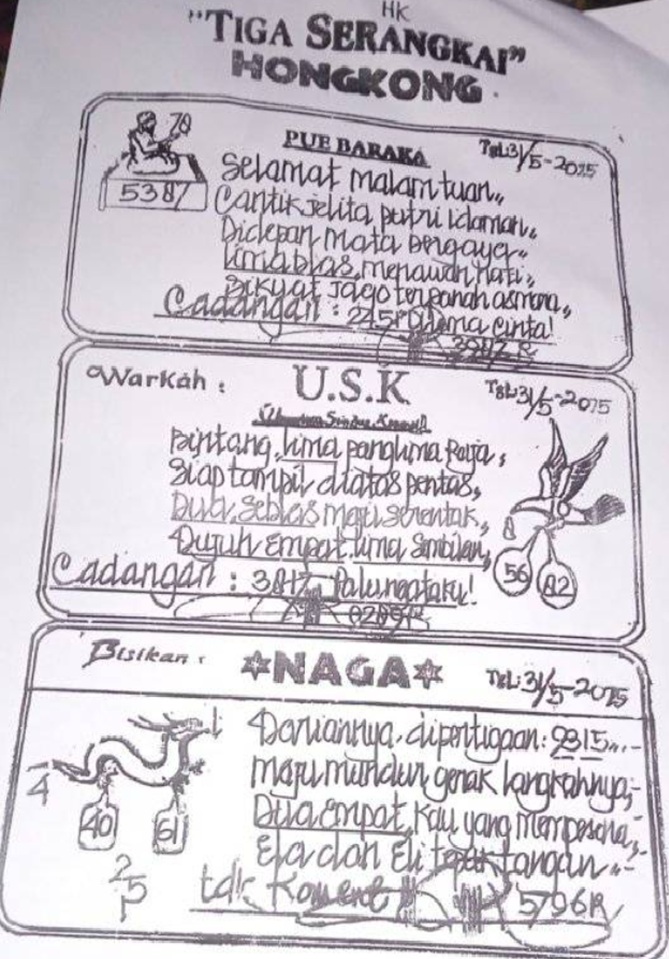 HK
"TIGA SERANGKAI"
HONGKONG
70
5387
PUE BARAKA
TGL: 31/5-2025
Selamat malam tuan,,
Cantik jelita putri idaman,,
Didepan mata bergaya,,
lima blas, menawan hati,,
jago terpanah asmara,,
Cadangan : 245 cinta!
Warkah :
U.S.K
TGL: 31/5-2025
Bintang, lima panglima Raja,
Siap tampil diatas pentas,
Dua, Seblas maju serentak,,
Tujuh Empat, lima Sembilan,
Cadangan :
56 82
Bisikan :
NAGA
TGL: 31/5-2025
dipertigaan: 9315,,..-
Maju mundur gerak langkahnya,-
Dua empat, kau yang mempesona,-
Ela dan Eli tangan ,,-
4
40 61
2
5
1
5796R